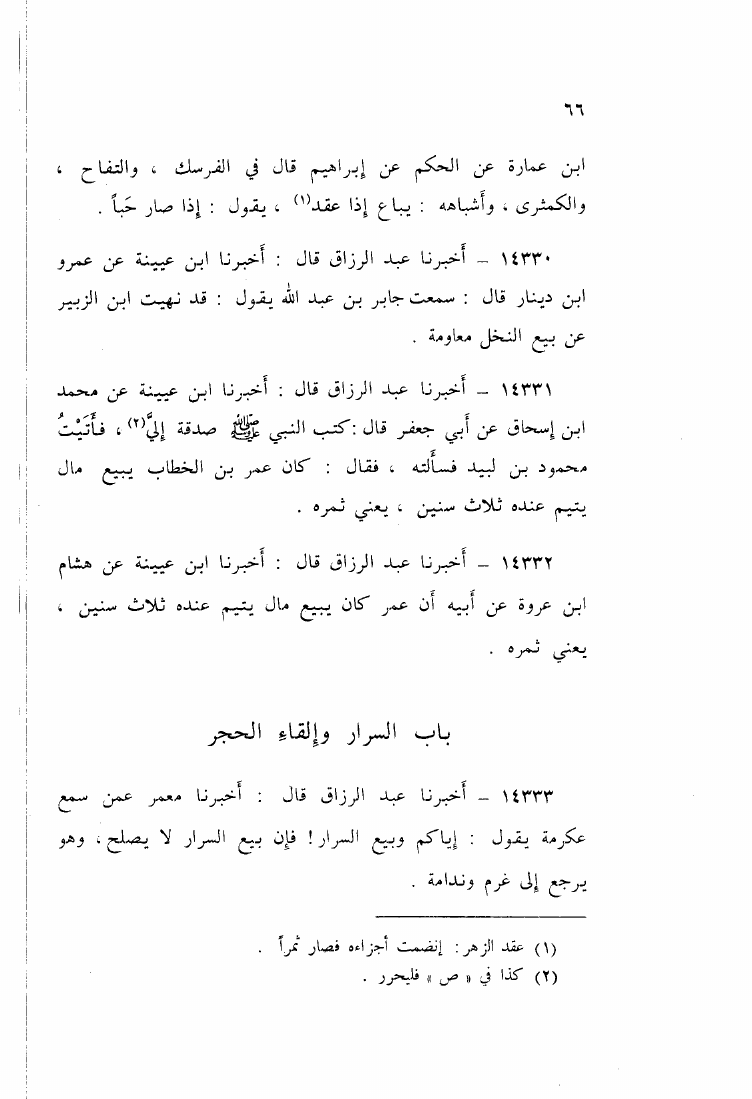 ٦٦
ابن عمارة عن الحكم عن إبراهيم قال في الفرسك ، والتفاح ،
والكمثرى ، وأشباهه : يباع إذا عقد(١) ، يقول : إذا صار حَباً .
١٤٣٣٠ – أخبرنا عبد الرزاق قال : أخبرنا ابن عيينة عن عمرو
ابن دينار قال : سمعت جابر بن عبد الله يقول : قد نهيت ابن الزبير
عن بيع النخل معاومة .
١٤٣٣١ – أخبرنا عبد الرزاق قال : أخبرنا ابن عيينة عن محمد
ابن إسحاق عن أبي جعفر قال : كتب النبي ﷺ صدقة إليَّ(٢) ، فأَتَيْتُ
محمود بن لبيد فسألته ، فقال : كان عمر بن الخطاب يبيع مال
يتيم عنده ثلاث سنين ، يعني ثمره .
١٤٣٣٢ – أخبرنا عبد الرزاق قال : أخبرنا ابن عيينة عن هشام
ابن عروة عن أبيه أن عمر كان يبيع مال يتيم عنده ثلاث سنين ،
يعني ثمره .
باب السرار وإلقاء الحجر
١٤٣٣٣ – أخبرنا عبد الرزاق قال : أخبرنا معمر عمن سمع
عكرمة يقول : إياكم وبيع السرار ! فإن بيع السرار لا يصلح ، وهو
يرجع إلى غرم وندامة .
(١) عقد الزهر : إنضمت أجزاءه فصار ثمراً .
(٢) كذا في « ص » فليحرر .